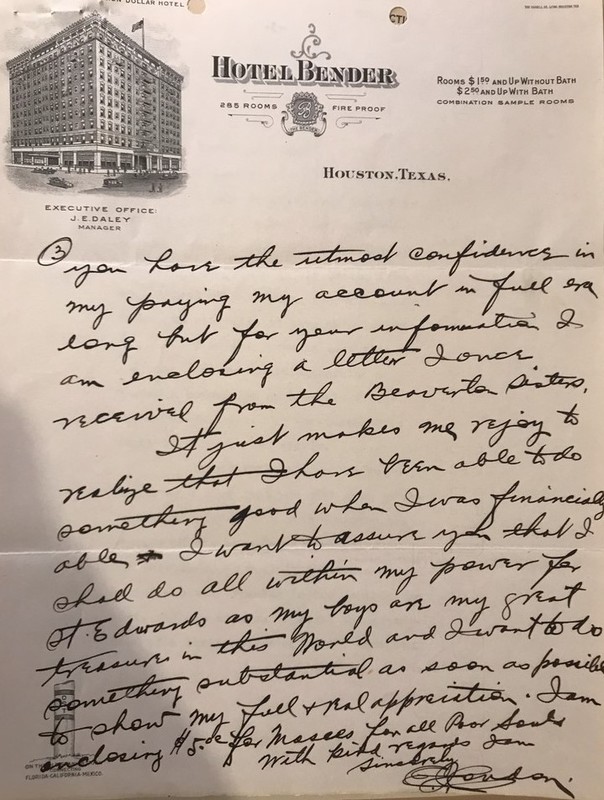 DOLLAR HOTEL
CTI
HOTEL BENDER
285 ROOMS FIRE PROOF
ROOMS $1.50 AND UP WITHOUT BATH
$2.50 AND UP WITH BATH
COMBINATION SAMPLE ROOMS
HOUSTON, TEXAS.
EXECUTIVE OFFICE:
J. E. DALEY
MANAGER
③
you have the utmost confidence in
my paying my account in full ere
long but for your information I
am enclosing a letter I once
received from the Beaverton Sisters.
It just makes me rejoy to
realize that I have been able to do
something good when I was financially
able I want to assure you that I
shall do all within my power for
St. Edwards as my boys are my great
treasures in this World and I want to do
something substantial as soon as possible
to show my full & real appreciation. I am
enclosing $5.00 for Masses for all Poor Souls
With kind regards I am
Sincerely
ON THE
FLORIDA-CALIFORNIA-MEXICO.